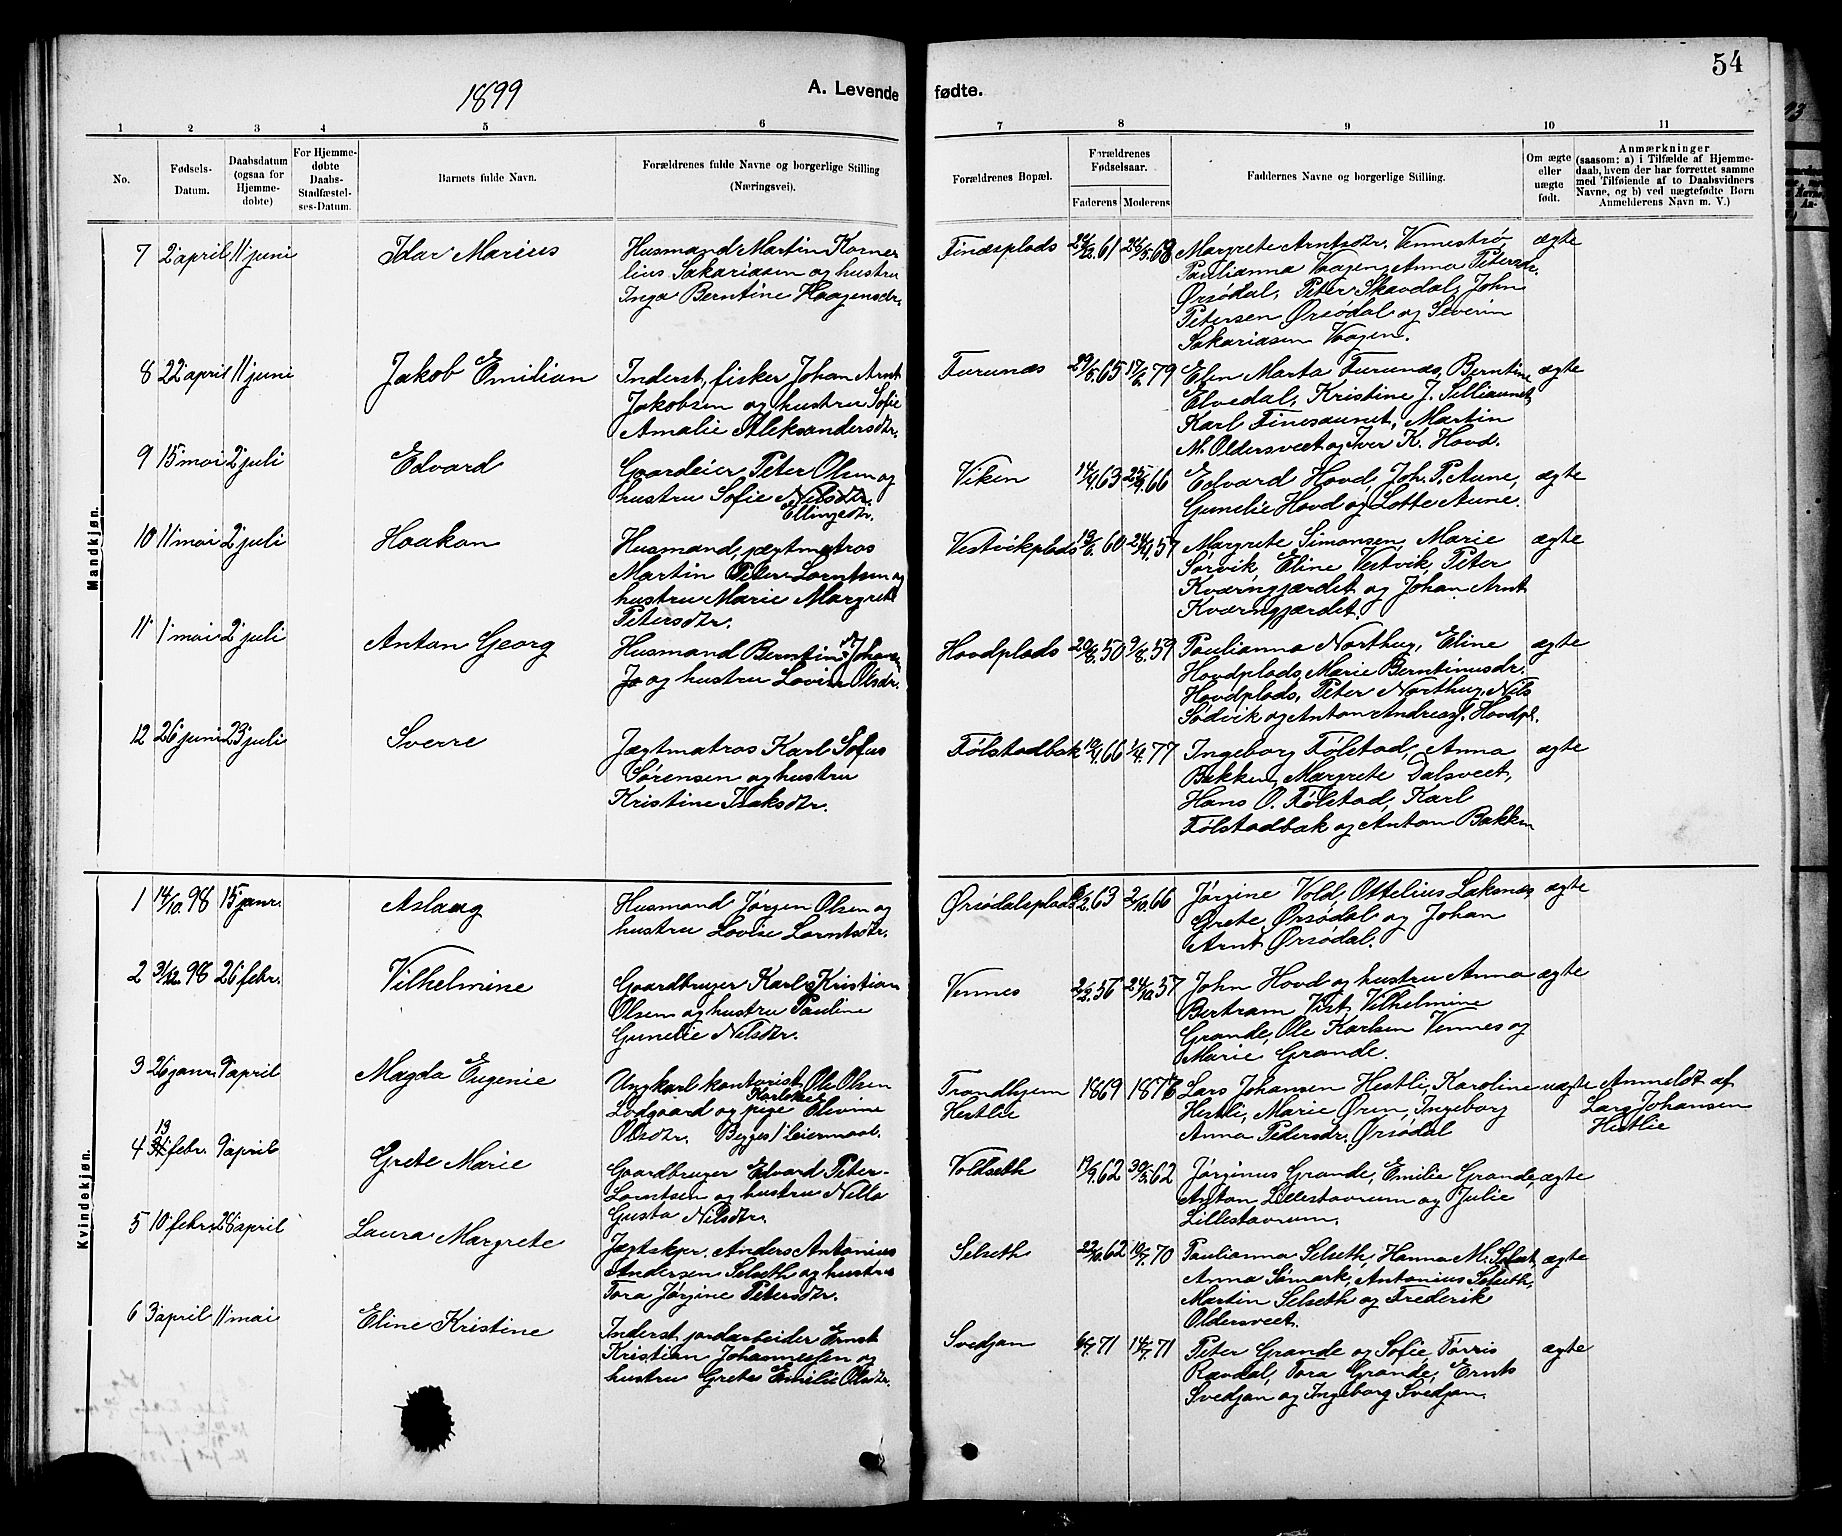 54
1899
A. Levende fødte.
1 2 3 4 5 6 7 8 9 10 11
No.
Fødsels-Datum.
Daabsdatum (ogsaa for Hjemme-døbte)
For Hjemme-døbte Daabs-Stadfæstel-ses-Datum.
Barnets fulde Navn.
Forældrenes fulde Navne og borgerlige Stilling
(Næringsvei).
Forældrenes Bopæl.
Forældrenes Fødselsaar.
Faderens Moderens
Faddernes Navne og borgerlige Stilling.
Om ægte eller uægte født.
Anmærkninger
(saasom: a) i Tilfælde af Hjemme-
daab, hvem der har forrettet samme
med Tilføiende af to Daabsvidners
Navne, og b) ved uegtefødte Børn
Anmelderens Navn m. V.)
Mandkjøn.
7 2 april 11 juni Idar Marius
Husmand Martin Korne-
lius Sakariasen og hustru
Inga Berntine Haagensdr.
Finæsplads 61 68
Margrete Arntsdtr. Vennestrø,
Paulianna Vaagen, Anna Petersdr.
Ørsødal, Peter Skavdal, John
Petersen Ørsødal og Severin
Sakariasen Vaagen.
ægte
8 22 april 11 juni Jakob Emilian
Inderst, fisker Johan Arnt
Jakobsen og hustru Sofie
Amalie Aleksandersdtr.
Furunæs 29/5.65 17/6.79
Elin Marta Furunæs, Berntine
Elvedal, Kristine J. Selliaunet,
Karl Finesaunet, Martin
M. Oldersveet og Iver K. Hovd.
ægte
9 15 mai 2 juli Edvard
Gaardeier Peter Olsen og
hustru Sofie Nilsdtr.
Ellingsdtr.
Viken 14/9.63 25/9.66
Edvard Hovd, Joh. P. Aune,
Gunelie Hovd og Lotte Aune.
ægte
10 11 mai 2 juli Haakon
Husmand, jægtmatros
Martin Peter Lorntsen og
hustru Marie Margrete
Petersdtr.
Vestvikplads 60 57
Margrete Simonsen, Marie
Sørvik, Eline Vestvik, Peter
Kværngjærdet og Johan Arnt
Kværngjærdet.
ægte
11 1 mai 2 juli Anton Georg
Husmand Berntinus Johansen
Jo og hustru Lovise Olsdr.
Hovdplads 29/8.50 9/8.59
Paulianna Northug, Eline
Hovdplads, Marie Berntinusdr.
Hovdplads, Peter Northug, Nils
Sødvik og Anton Andreas J. Hovdpl.
ægte
12 26 juni 23 juli Sverre
Jægtmatros Karl Sofus
Sørensen og hustru
Kristine Isaksdtr.
Følstadbak 66 77
Ingeborg Følstad, Anna
Bakken, Margrete Dalsveet,
Hans O. Følstad, Karl
Følstadbak og Anton Bakken
ægte
Kvindekjøn.
1 14/10.98 15 janr. Aslaug
Husmand Jørgen Olsen og
hustru Lovise Lorntsdtr.
Ørsødalsplads 63 2/10.66
Jørgine Vold, Ottelius Laksnæs
Grete Ørsødal og Johan
Arnt Ørsødal.
ægte
2 31/12.98 26 febr. Vilhelmine
Gaardbruger Karl Kristian
Olsen og hustru Pauline
Gunelie Nilsdtr.
Vennes 2/2.56 24/10.57
John Hovd og hustru Anna
Bertram Vist, Vilhelmine
Grande, Ole Karlsen Vennes og
Marie Grande.
ægte
3 26 janr. 9 april Magda Eugenie
Ungkarl kontorist Ole Olsen
Lodgaard og pige Karoline Olivine
Olsdtr. Begges 1 leiermaal.
Trondhjem
Hestlie
1869 1876
Lars Johansen Hestli, Karoline
Hestli, Marie Ørin, Ingeborg
Anna Pedersdr. Ørsødal
uægte
Anmeldt af
Lars Johansen
Hestlie
4 13 febr. 9 april Grete Marie
Gaardbruger Edvard Peter
Lorntsen og hustru Nilla
Gusta Nilsdtr.
Voldseth 17/9.62 30/5.62
Jørginus Grande, Emilie Grande,
Anton Lillestavrum og Julie
Lillestavrum.
ægte
5 10 febr. 28 april Laura Margrete
Jægtskpr. Anders Antonius
Andersen Selseth og hustru
Tora Jørgine Petersdtr.
Selseth 62 70
Paulianna Selseth, Hanna M. Selset,
Anna Sømark, Antonius Selseth,
Martin Selseth og Frederik
Oldersveet.
ægte
6 3 april 11 mai Eline Kristine
Inderst, jordarbeider Ernst
Kristian Johannessen og
hustru Grete Emilie Olsdtr.
Svedjan 71 14/7.71
Peter Grande og Sofie Tørris
Ravdal, Tora Grande, Ernts
Svedjan og Ingeborg Svedjan.
ægte